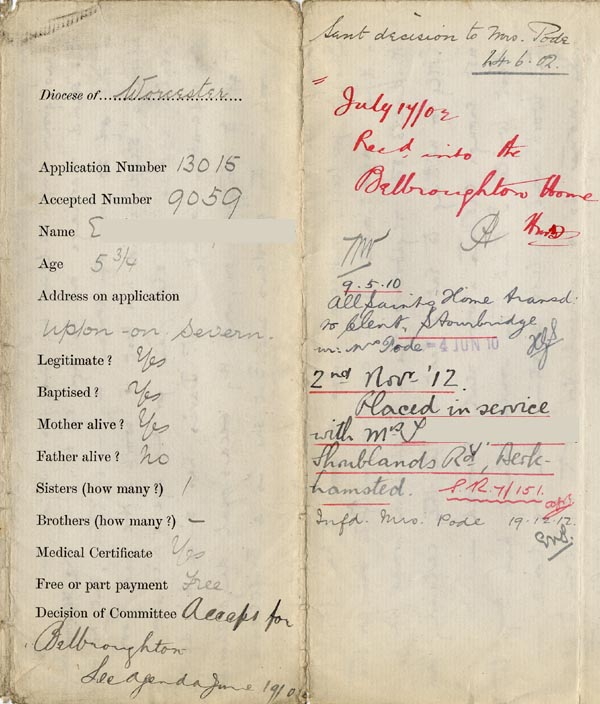 Diocese of Worcester
Application Number 13015
Accepted Number 9059
Name E
Age 5 3/4
Address on application
Upton-on Severn.
Legitimate? Yes
Baptised? Yes
Mother alive? Yes
Father alive? No
Sisters (how many?) 1
Brothers (how many?) –
Medical Certificate Yes
Free or part payment Free
Decision of Committee Accept for
Belbroughton
See agenda June 19/02
Sent decision to Mrs. Pode
24.6.02.
" July 17/02
Recd into the
Belbroughton Home
9.5.10
All Saints Home transd.
to Clent, Stourbridge
Mrs Pode - 4 JUN 10
2nd Novr '12.
Placed in service
with Mrs
Shrublands Rd, Berk-
hamsted. S.R. 7/151.
Infd. Mrs. Pode 19.12.12.